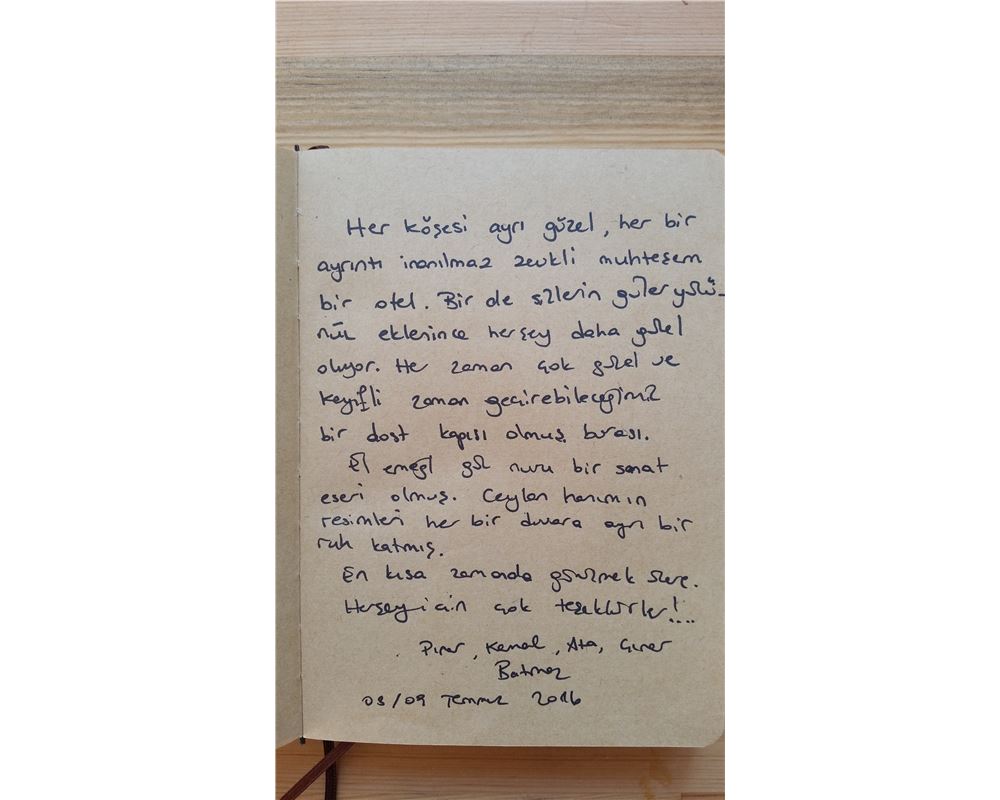 Her köşesi ayrı güzel, her bir
ayrıntı inanılmaz zevkli muhteşem
bir otel. Bir de sizlerin güleryüzlü-
nüz eklenince herşey daha güzel
oluyor. Her zaman çok güzel ve
keyifli zaman geçirebileceğimiz
bir dost kapısı olmuş burası.
El emeği göz nuru bir sanat
eseri olmuş. Ceylan hanımın
resimleri her bir duvara ayrı bir
ruh katmış.
En kısa zamanda görülmek üzere.
Herşey için çok teşekkürler!...
Pınar, Kemal, Ata, Çınar
Batmaz
08/09 Temmuz 2016